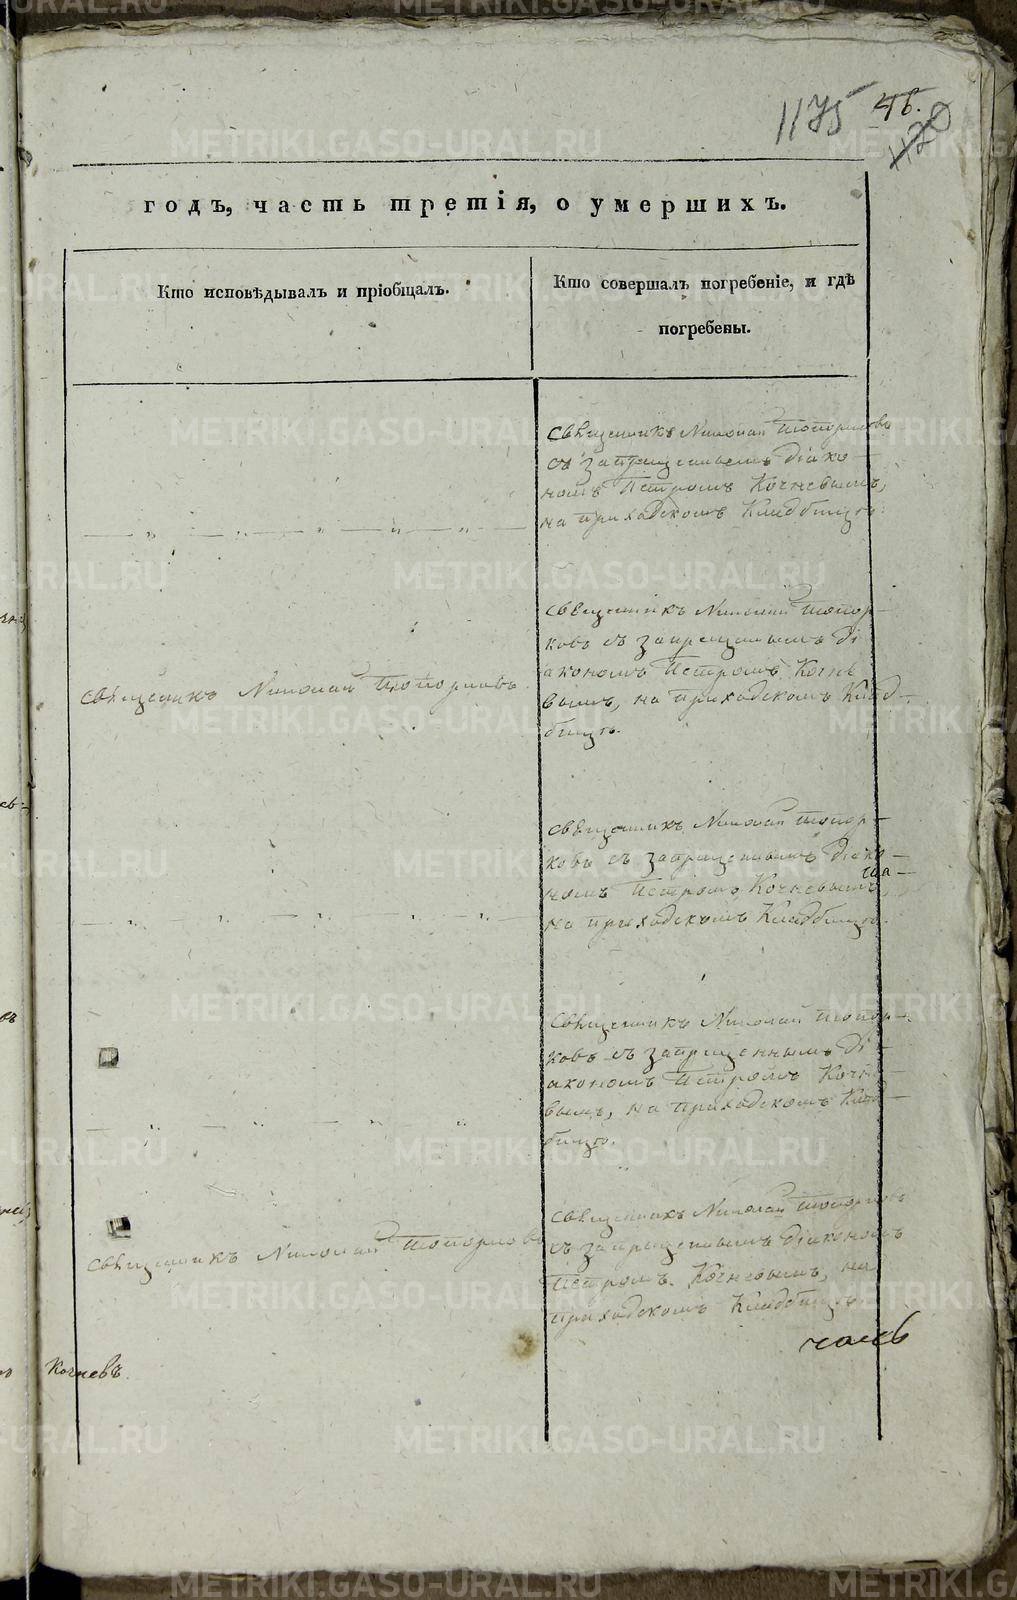 1175 46.
1120
годъ, часть третія, о умершихъ.
Кто исповѣдывалъ и пріобщалъ.
Кто совершалъ погребеніе, и гдѣ
погребены.
Священникъ Николай Топорковъ
съ запрещеннымъ діако
номъ Петромъ Кочневымъ,
на приходскомъ Кладбищѣ
Священникъ Николай Топорковъ
Священникъ Николай Топор-
ковъ съ запрещеннымъ ді
акономъ Петромъ Кочне
вымъ, на приходскомъ Клад-
бищѣ.
Священникъ Николай Топор-
ковъ съ запрещеннымъ діако-
номъ Петромъ Кочневымъ,
на приходскомъ Кладбищѣ.
Священникъ Николай Топор-
ковъ съ запрещеннымъ ді-
акономъ Петромъ Кочне-
вымъ, на приходскомъ Клад-
бищѣ.
Священникъ Николай Топорковъ
Священникъ Николай Топорковъ
съ запрещеннымъ діакономъ
Петромъ Кочневымъ, на
приходскомъ Кладбищѣ
часть
Кочневъ.
METRIKI.GASO-URAL.RU